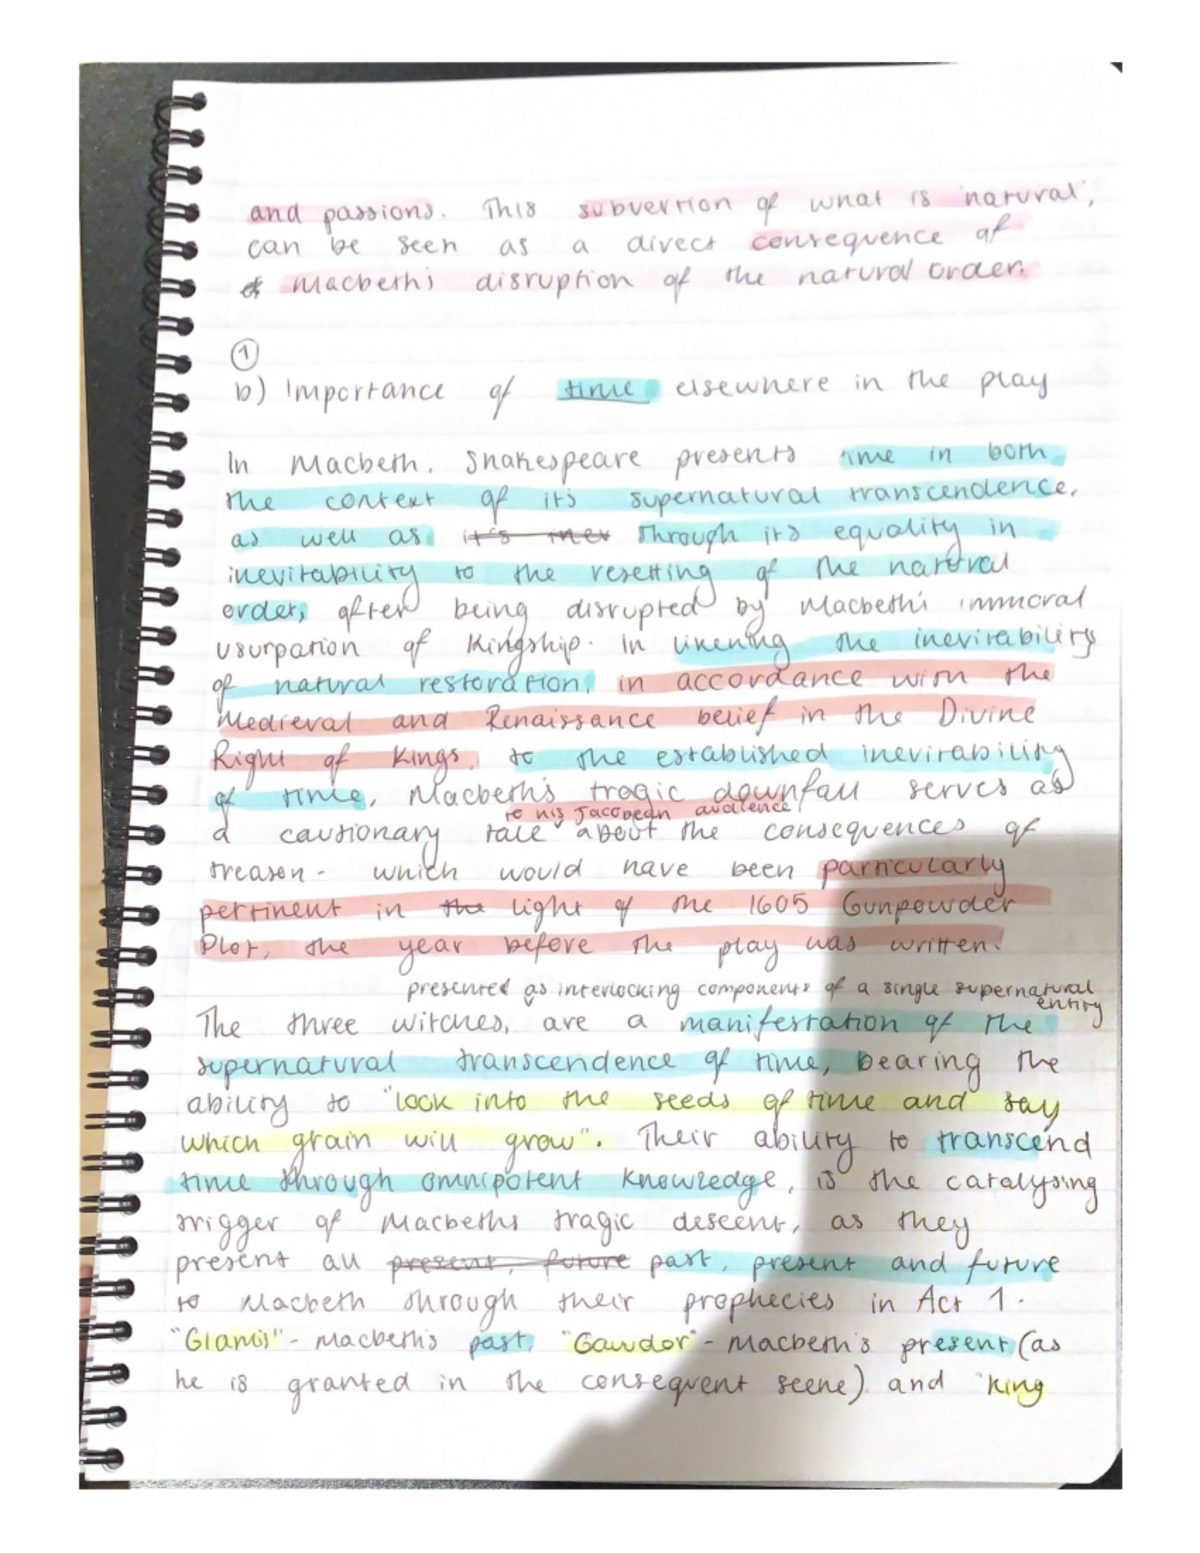 and passions. This subvertion of what is 'natural',
can be seen as a direct consequence of
Macbeth's disruption of the natural order.
1
b) Importance of time elsewhere in the play
In Macbeth, Shakespeare presents time in both
the context of its supernatural transcendence,
as well as it's inev through its equality in
inevitability to the resetting of the natural
order, after being disrupted by Macbeth's immoral
usurpation of Kingship. In likening the inevitability
of natural restoration, in accordance with the
Medieval and Renaissance belief in the Divine
Right of Kings, to the established inevitability
of time, Macbeth's tragic downfall serves as
to his Jacobean audience
a cautionary tale about the consequences of
treason - which would have been particularly
pertinent in the light of the 1605 Gunpowder
Plot, the year before the play was written.
presented as interlocking components of a single supernatural
entity
The three witches, are a manifestation of the
supernatural transcendence of time, bearing the
ability to "look into the seeds of time and say
which grain will grow". Their ability to transcend
time through omnipotent knowledge, is the catalysing
trigger of Macbeths tragic descent, as they
present all present, future past, present and future
to Macbeth through their prophecies in Act 1.
"Glamis" - Macbeth's past, "Cawdor" - Macbeth's present (as
he is granted in the consequent scene) and "King